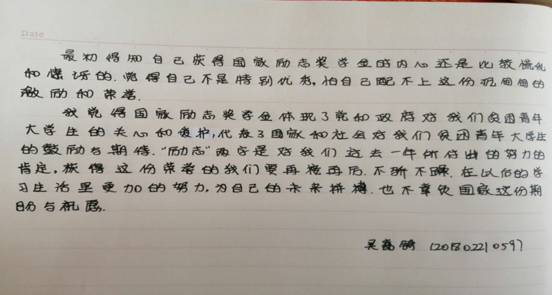 Date
最初得知自己获得国家励志奖学金时内心还是比较慌乱
和惊讶的,觉得自己不是特别优秀,怕自己配不上这份沉甸甸的
激励和荣誉.
我觉得国家励志奖学金体现了党和政府对我们贫困青年
大学生的关心和爱护,代表了国家和社会对我们贫困青年大学生
的鼓励与期待."励志"两字是对我们过去一年所付出的努力的
肯定,获得这份荣誉的我们要再接再厉.不断不踩.在以后的学
习生活里更加的努力,为自己的未来拼搏.也不辜负国家这份期
盼与祝愿.
(201802210597)